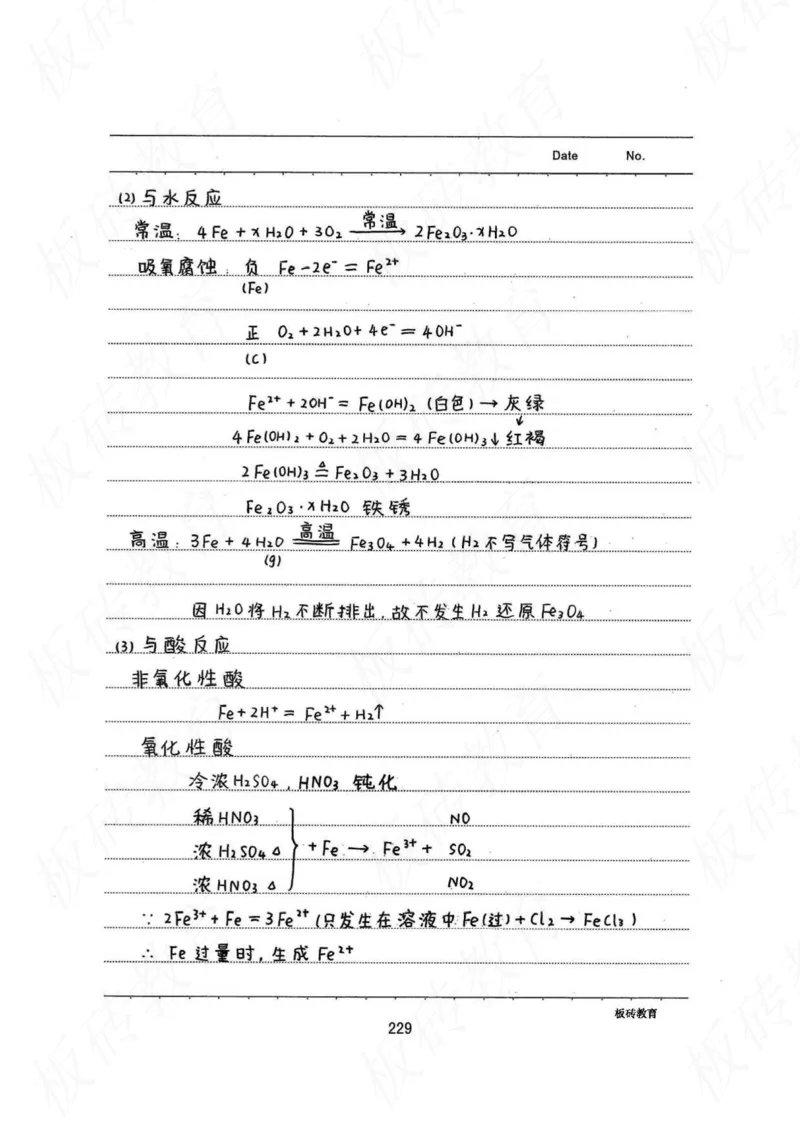 Date No.
(2) 与水反应
常温: 4Fe + xH₂O + 3O₂ —常温→ 2Fe₂O₃·xH₂O
吸氧腐蚀: 负 Fe - 2e⁻ = Fe²⁺
(Fe)
正 O₂ + 2H₂O + 4e⁻ = 4OH⁻
(C)
Fe²⁺ + 2OH⁻ = Fe(OH)₂ (白色) → 灰绿
↓
4Fe(OH)₂ + O₂ + 2H₂O = 4Fe(OH)₃↓ 红褐
2Fe(OH)₃ ≜ Fe₂O₃ + 3H₂O
Fe₂O₃·xH₂O 铁锈
高温: 3Fe + 4H₂O =高温= Fe₃O₄ + 4H₂ (H₂不写气体符号)
(g)
因H₂O将H₂不断排出, 故不发生H₂还原Fe₃O₄
(3) 与酸反应
非氧化性酸
Fe + 2H⁺ = Fe²⁺ + H₂↑
氧化性酸
冷浓H₂SO₄, HNO₃ 钝化
稀HNO₃ NO
浓H₂SO₄ △ } + Fe → Fe³⁺ + SO₂
浓HNO₃ △ NO₂
∵ 2Fe³⁺ + Fe = 3Fe²⁺ (只发生在溶液中 Fe(过) + Cl₂ → FeCl₃)
∴ Fe过量时, 生成Fe²⁺
板砖教育
229